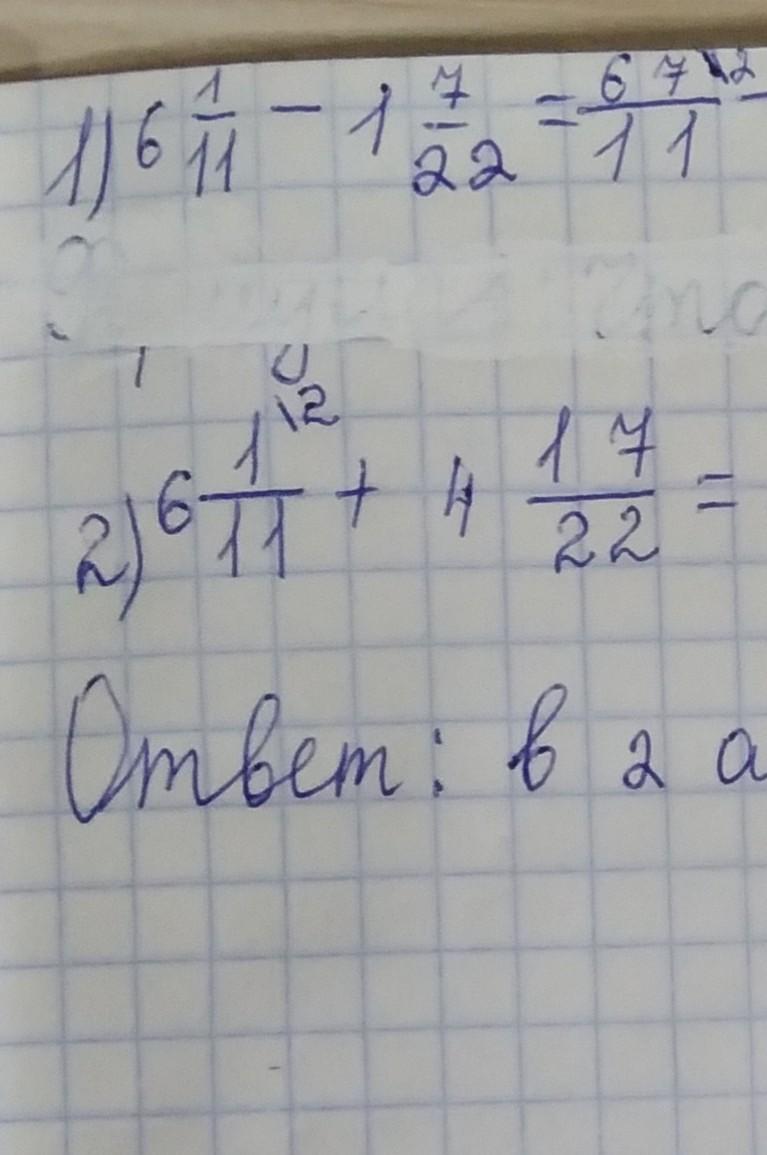 1) 6 1/11 - 1 7/22 = 67\2/11 -
2) 6 1\2/11 + 4 17/22 =
Ответ: в 2 а